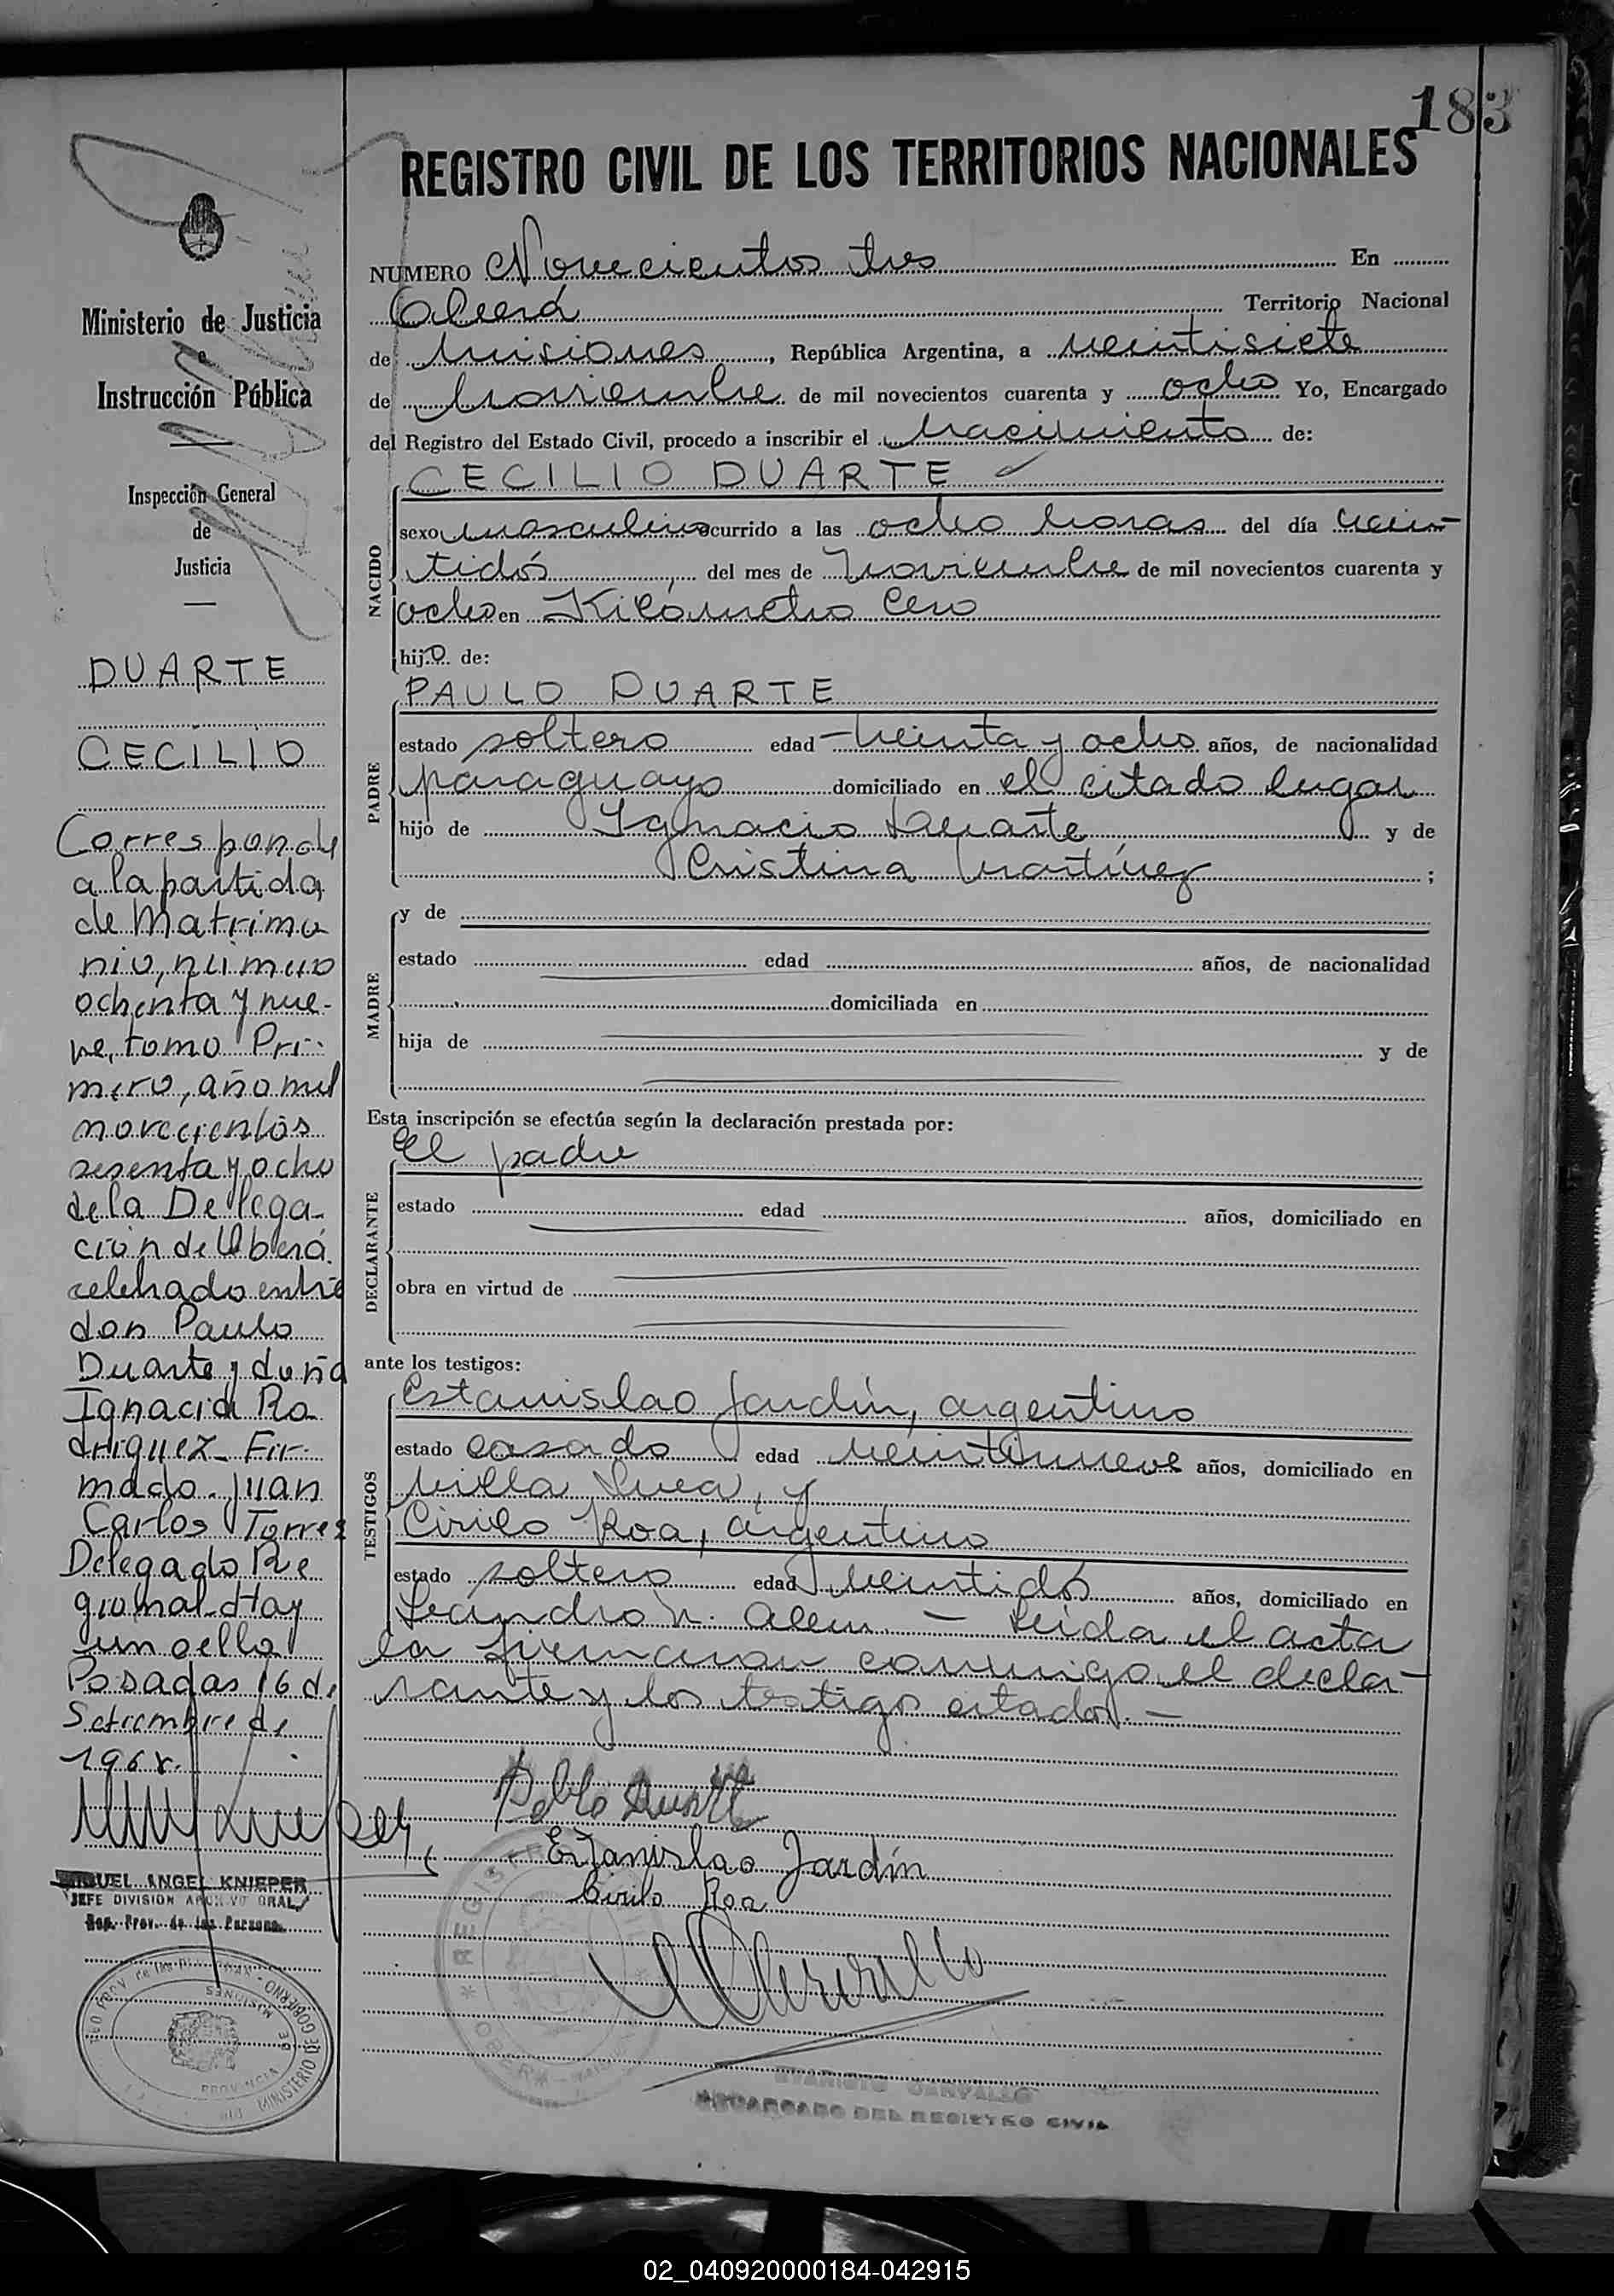 183
REGISTRO CIVIL DE LOS TERRITORIOS NACIONALES
NUMERO Novecientos tres En
Oberá Territorio Nacional
de Misiones, República Argentina, a veintisiete
de Noviembre de mil novecientos cuarenta y ocho Yo, Encargado
del Registro del Estado Civil, procedo a inscribir el Nacimiento de:
NACIDO
CECILIO DUARTE
sexo masculino ocurrido a las ocho horas del día vein-
tidós, del mes de Noviembre de mil novecientos cuarenta y
ocho en Kilómetro Cero
hijo de:
PADRE
PAULO DUARTE
estado soltero edad treinta y ocho años, de nacionalidad
paraguayo domiciliado en el citado lugar
hijo de Ygnacio Duarte y de
Cristina Martínez ;
MADRE
y de
estado edad años, de nacionalidad
domiciliada en
hija de y de
Esta inscripción se efectúa según la declaración prestada por:
DECLARANTE
El padre
estado edad años, domiciliado en
obra en virtud de
ante los testigos:
TESTIGOS
Estanislao Jardín, argentino
estado casado edad veintinueve años, domiciliado en
Villa Svea, y
Cirilo Roa, argentino
estado soltero edad veintidós años, domiciliado en
Leandro N. Alem. — Leida el acta
la firmaron conmigo el decla-
rante y los testigos citados. —
Pablo Duarte
Estanislao Jardín
Cirilo Roa
CARVALLO
ENCARGADO DEL REGISTRO CIVIL
Ministerio de Justicia
e
Instrucción Pública
Inspección General
de
Justicia
DUARTE
CECILIO
Corresponde
a la partida
de Matrimo
nio, número
ochenta y nue-
ve, tomo Pri-
mero, año mil
novecientos
sesenta y ocho
de la Delega-
ción de Oberá
celebrado entre
don Paulo
Duarte y doña
Ignacia Ro
driguez - Fir-
mado. Juan
Carlos Torres
Delegado Re
gional - Hay
un sello
Posadas 16 de
Setiembre de
1968.
MIGUEL ANGEL KNIEPER
JEFE DIVISION ARCHIVO GRAL.
Reg. Prov. de las Personas
MINISTERIO DE GOBIERNO
PROVINCIA DE MISIONES
REGISTRO
OBERA
02_040920000184-042915